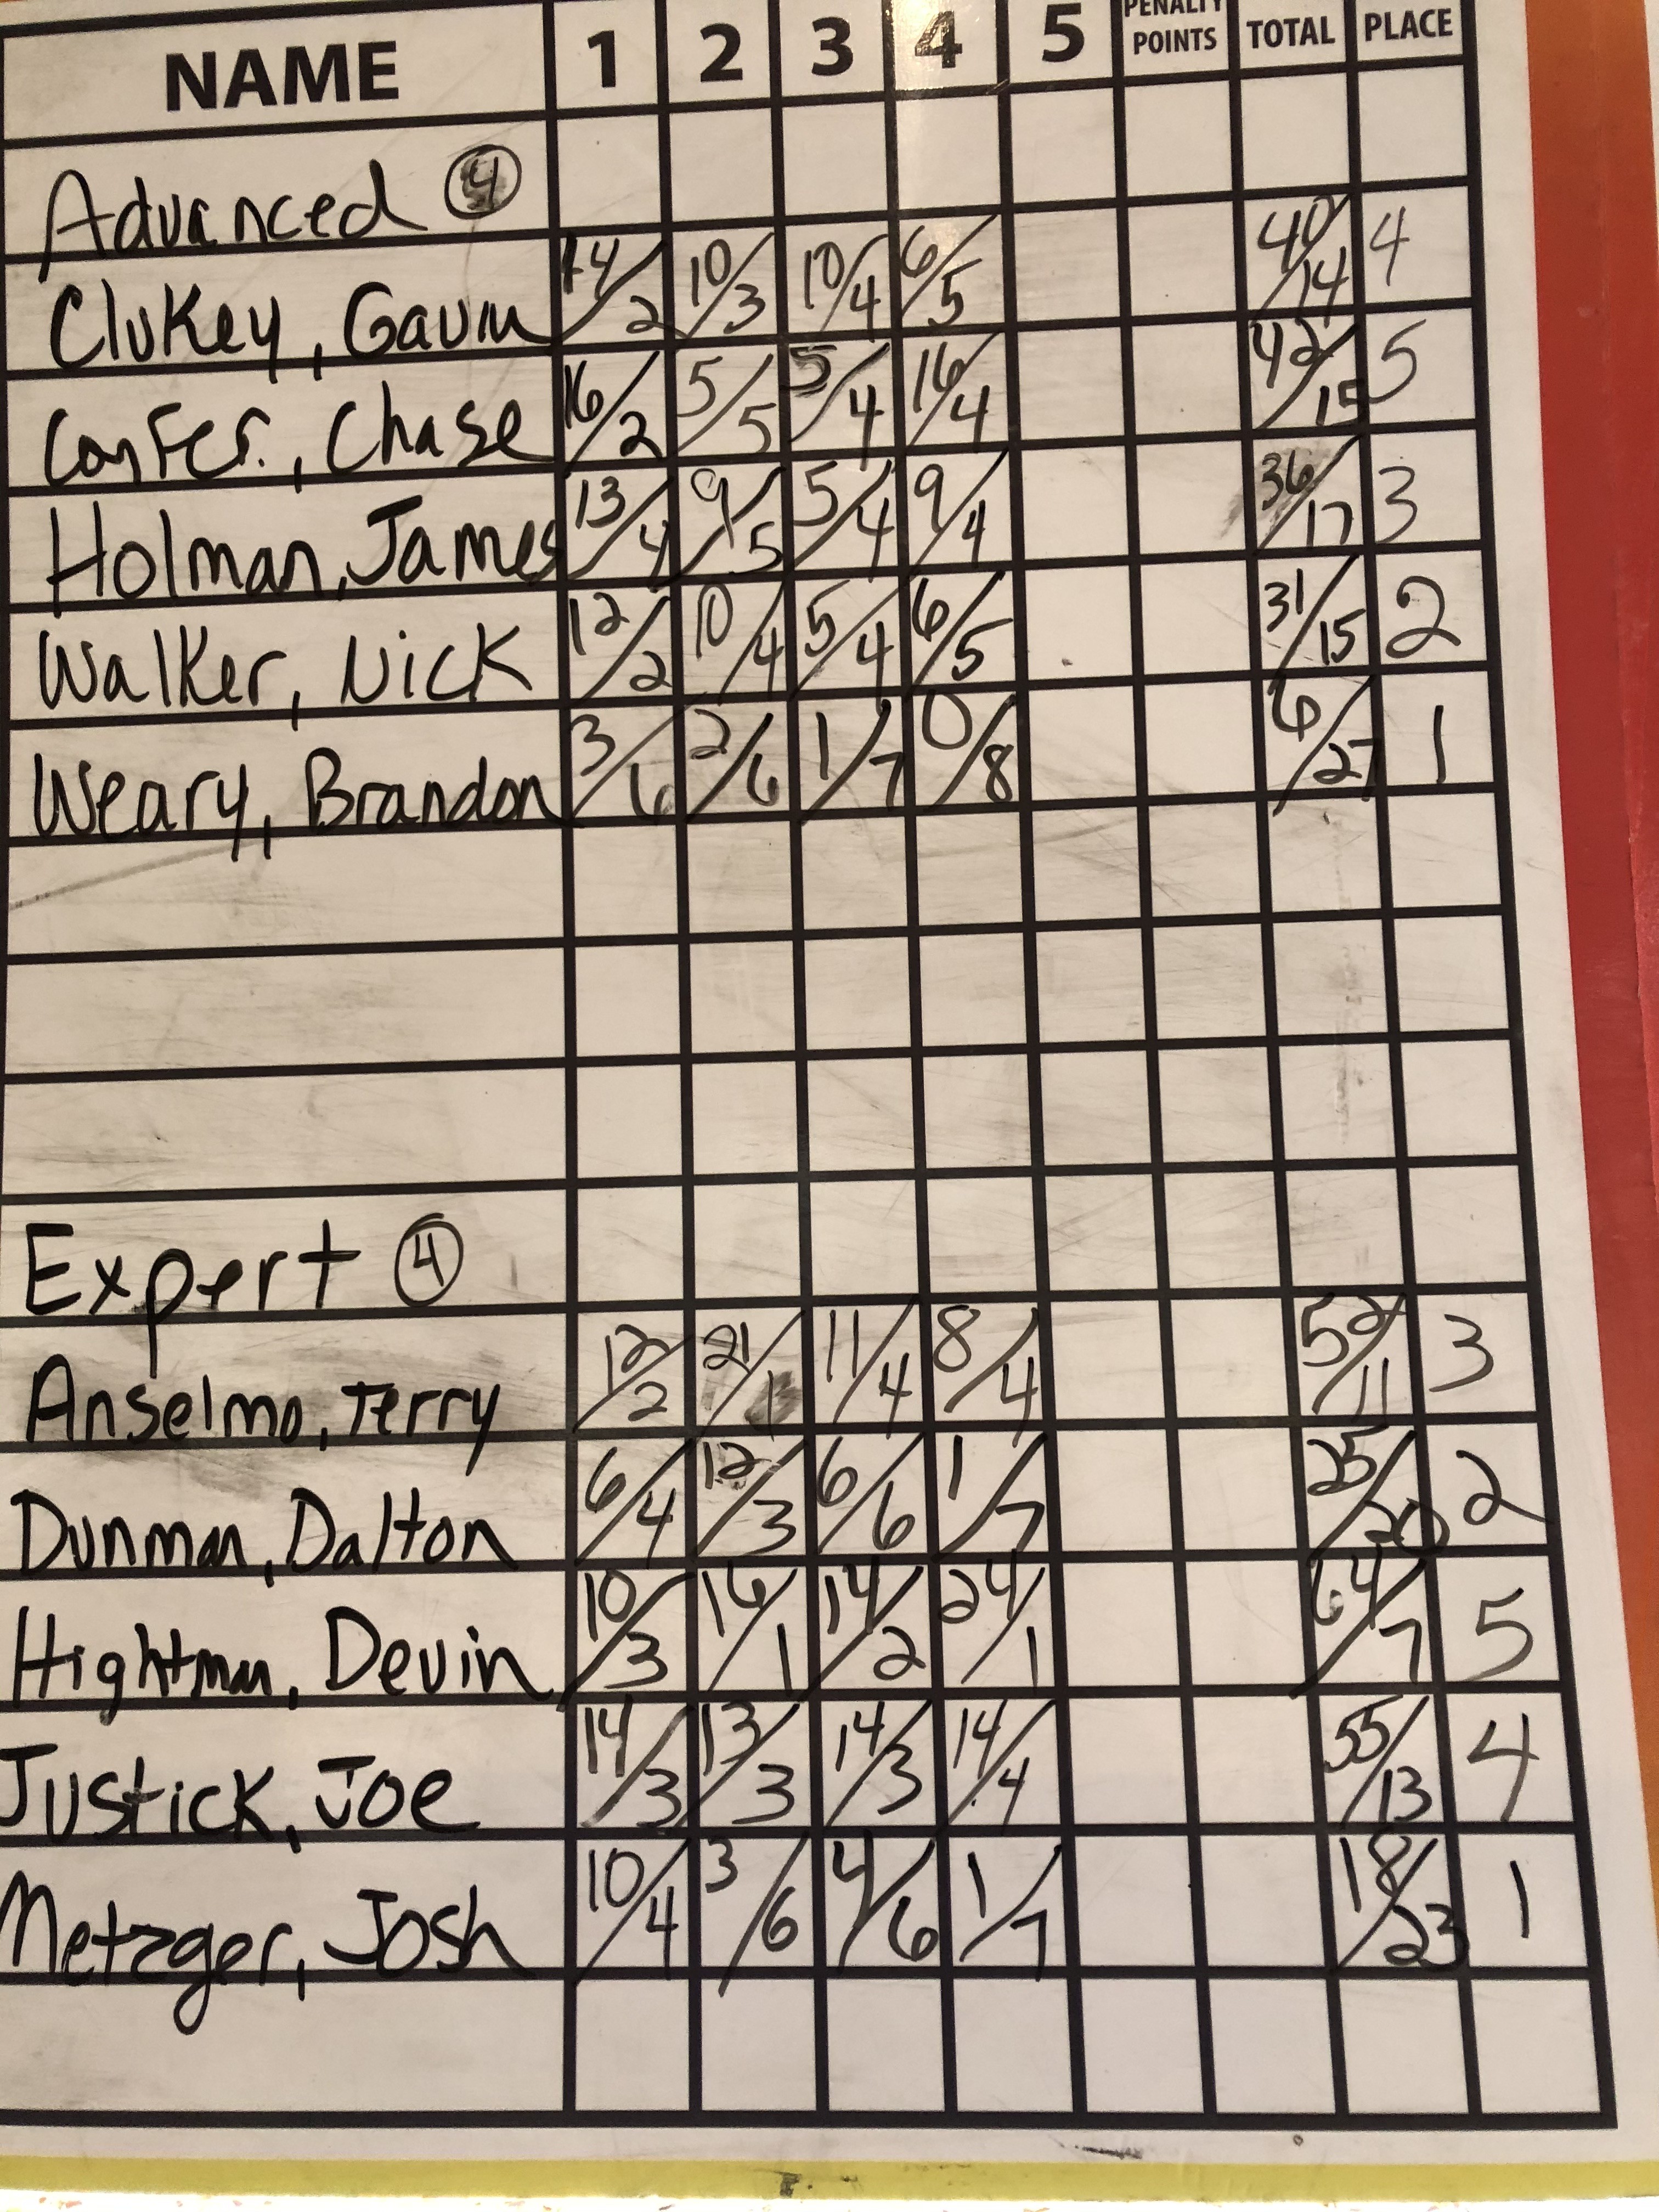 NAME 1 2 3 4 5 PENALTY POINTS TOTAL PLACE
Advanced 4
Clukey, Gavin 14/2 10/3 10/4 6/5 40/14 4
Confer, Chase 16/2 5/5 5/4 16/4 42/15 5
Holman, James 13/4 9/5 5/4 9/4 36/17 3
Walker, Nick 12/2 10/4 5/4 6/5 31/15 2
Weary, Brandon 3/6 2/6 1/7 0/8 6/27 1
Expert 4
Anselmo, Terry 12/2 21/1 11/4 8/4 52/11 3
Dunman, Dalton 6/4 12/3 6/6 1/7 25/20 2
Hightman, Devin 10/3 16/1 14/2 24/1 64/7 5
Justick, Joe 14/3 13/3 14/3 14/4 55/13 4
Metzger, Josh 10/4 3/6 4/6 1/7 18/23 1